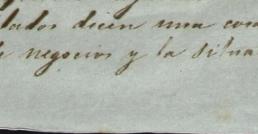 lados dicen una con
negocios y la situa